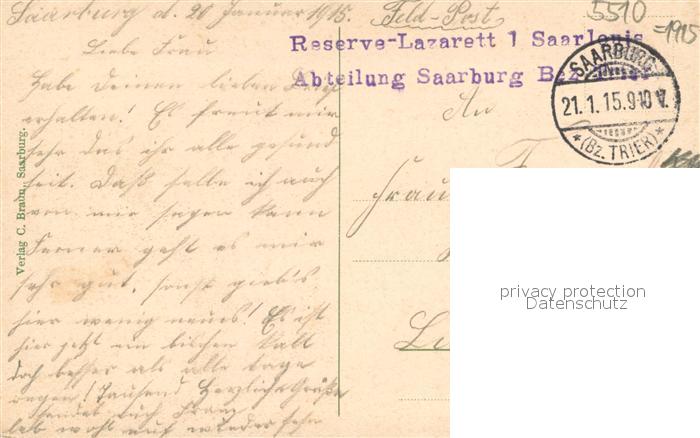 Saarburg d. 20 Januar 1915.
Feld-Post
5510
=1915
Liebe Frau
Reserve-Lazarett 1 Saarlouis
Abteilung Saarburg Bez. Trier
SAARBURG
21.1.15.9-10 V.
*(Bz. TRIER)*
Habe Deinen lieben Brief
erhalten! Es freut mir
sehr das ihr alle gesund
seit. Daß selbe ich auch
von mir sagen kann
Ferner geht es mir
sehr gut, sonst gieb's
hier wenig neues! Es ist
hier jetzt ein bischen kalt
doch besser als alle tage
regen! Tausend Herzliche Grüße
sendet Euch Franz
leb wohl auf wiedersehn
An
Frau
Verlag C. Brahn, Saarburg.
privacy protection
Datenschutz